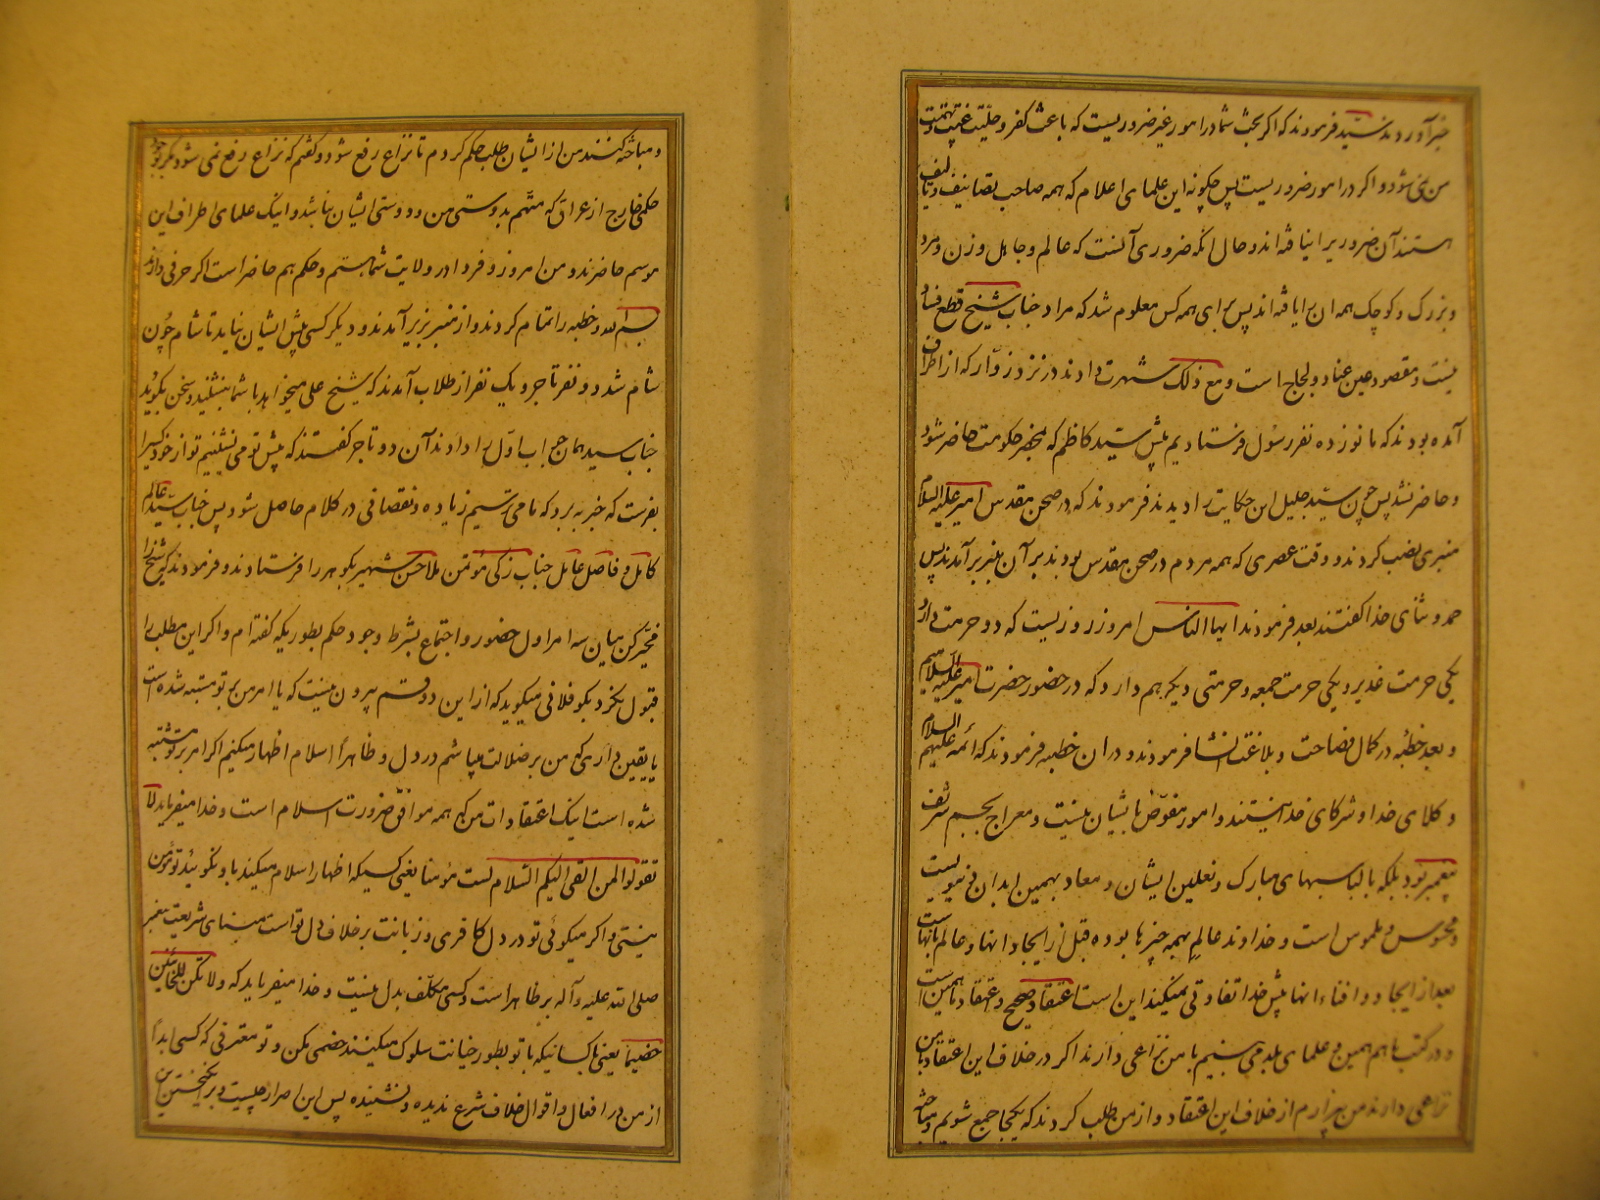 خبر آوردند سید فرمودند که اگر بحث شما در امور غیر ضروریست که باعث کفر و حلیت غیبت و تهمت
من نمی شود و اگر در امور ضروریست پس چگونه این علمای اعلام که همه صاحب تصانیف و تالیف
هستند آن ضروریرا نیافته اند و حال آنکه ضروری آنست که عالم و جاهل و زن و مرد
و بزرگ و کوچک همه ان را یافته اند پس برای همه کس معلوم شد که مراد جناب شیخ قطع فساد
نیست و مقصود عین عناد و لجاج است و مع ذلک شهرت دادند در نزد زوّار که از اطراف
آمده بودند که ما نوزده نفر رسول فرستادیم پیش سید کاظم که بمحضر حکومت حاضر شود
و حاضر نشد پس چون سید جلیل این حکایت را دیدند فرمودند که در صحن مقدس امیر علیه السلام
منبری نصب کردند و وقت عصری که همه مردم در صحن مقدس بودند بر آن منبر برآمدند پس
حمد و ثنای خدا گفتند بعد فرمودند ایها الناس امروز روزیست که دو حرمت دارد
یکی حرمت غدیر و یکی حرمت جمعه و حرمتی دیگر هم دارد که در حضور حضرت امیر علیه السلامیم
و بعد خطبه در کمال فصاحت و بلاغت انشا فرمودند و در ان خطبه فرمودند که ائمه علیهم السلام
وکلای خدا و شرکای خدا نیستند و امور مفوّض بایشان نیست و معراج بجسم شریف
پیغمبر بود بلکه با لباسهای مبارک و نعلین ایشان و معاد بهمین ابدان دنیویست
و محسوس و ملموس است و خداوند عالِم بهمه چیزها بوده قبل از ایجاد انها و عالم بانهاست
بعد از ایجاد و افناء انها پیش خدا تفاوتی نمیکند این است اعتقاد صحیح و اعتقاد ما همین است
و در کتب ما هم همین و علمای بلد می بینیم با من نزاعی دارند اگر در خلاف این اعتقاد با من
نزاعی دارند من بیزارم از خلاف این اعتقاد و از من طلب کردند که یکجا جمع شویم و مباحثه
و مباحثه کنند من از ایشان طلب حکم کردم تا نزاع رفع شود و گفتم که نزاع رفع نمی شود مگر بوجود
حکمی خارج از عراق که متّهم بدوستی من و دوستی ایشان نباشد و اینک علمای اطراف این
موسم حاضرند و من امروز و فردا در ولایت شما هستم و حکم هم حاضر است اگر حرفی دارند
بسم الله و خطبه را تمام کردند و از منبر بزیر آمدند و دیگر کسی پیش ایشان نیاید تا شام چون
شام شد دو نفر تاجر و یک نفر از طلاب آمدند که شیخ علی میخواهد با شما بنشیند و سخن بگوید
جناب سید همان جواب اول را دادند آن دو تاجر گفتند که پیش تو می نشینیم تو از خود کسیرا
بفرست که خبر به برد که ما می ترسیم زیاده و نقصانی در کلام حاصل شود پس جناب سید عالم
کامل و فاضل عامل جناب زکی مؤتمن ملا حسن شهیر بگوهر را فرستادند و فرمودند که شیخ را
مخیّر کن میان سه امر اول حضور و اجتماع بشرط وجود حکم بطوریکه گفته ام و اگر این مطلب را
قبول نکرد بگو فلانی میگوید که از این دو قسم بیرون نیست که یا امر من بر تو مشتبه شده است
یا یقین داری که من بر ضلالت میباشم در دل و ظاهراً اسلام اظهار میکنم اگر امر بر تو مشتبه
شده است اینک اعتقادات من که همه موافق ضرورت اسلام است و خدا میفرماید لا
تقولوا لمن القی الیکم السّلام لست مؤمنا یعنی کسیکه اظهار اسلام میکند باو نگوئید تو مؤمن
نیستی و اگر میگوئی تو در دل کافری و زبانت بر خلاف دل تو است مبنای شریعت پیغمبر
صلی الله علیه و آله بر ظاهر است و کسی مکلّف بدل نیست و خدا میفرماید که و لا تکن للخائنین
خصیما یعنی با کسانیکه با تو بطور خیانت سلوک میکنند خصمی مکن و تو معترفی که کسی ابداً
از من در افعال و اقوال خلاف شرع ندیده و نشنیده پس این اصرار چیست و برانگیختن این